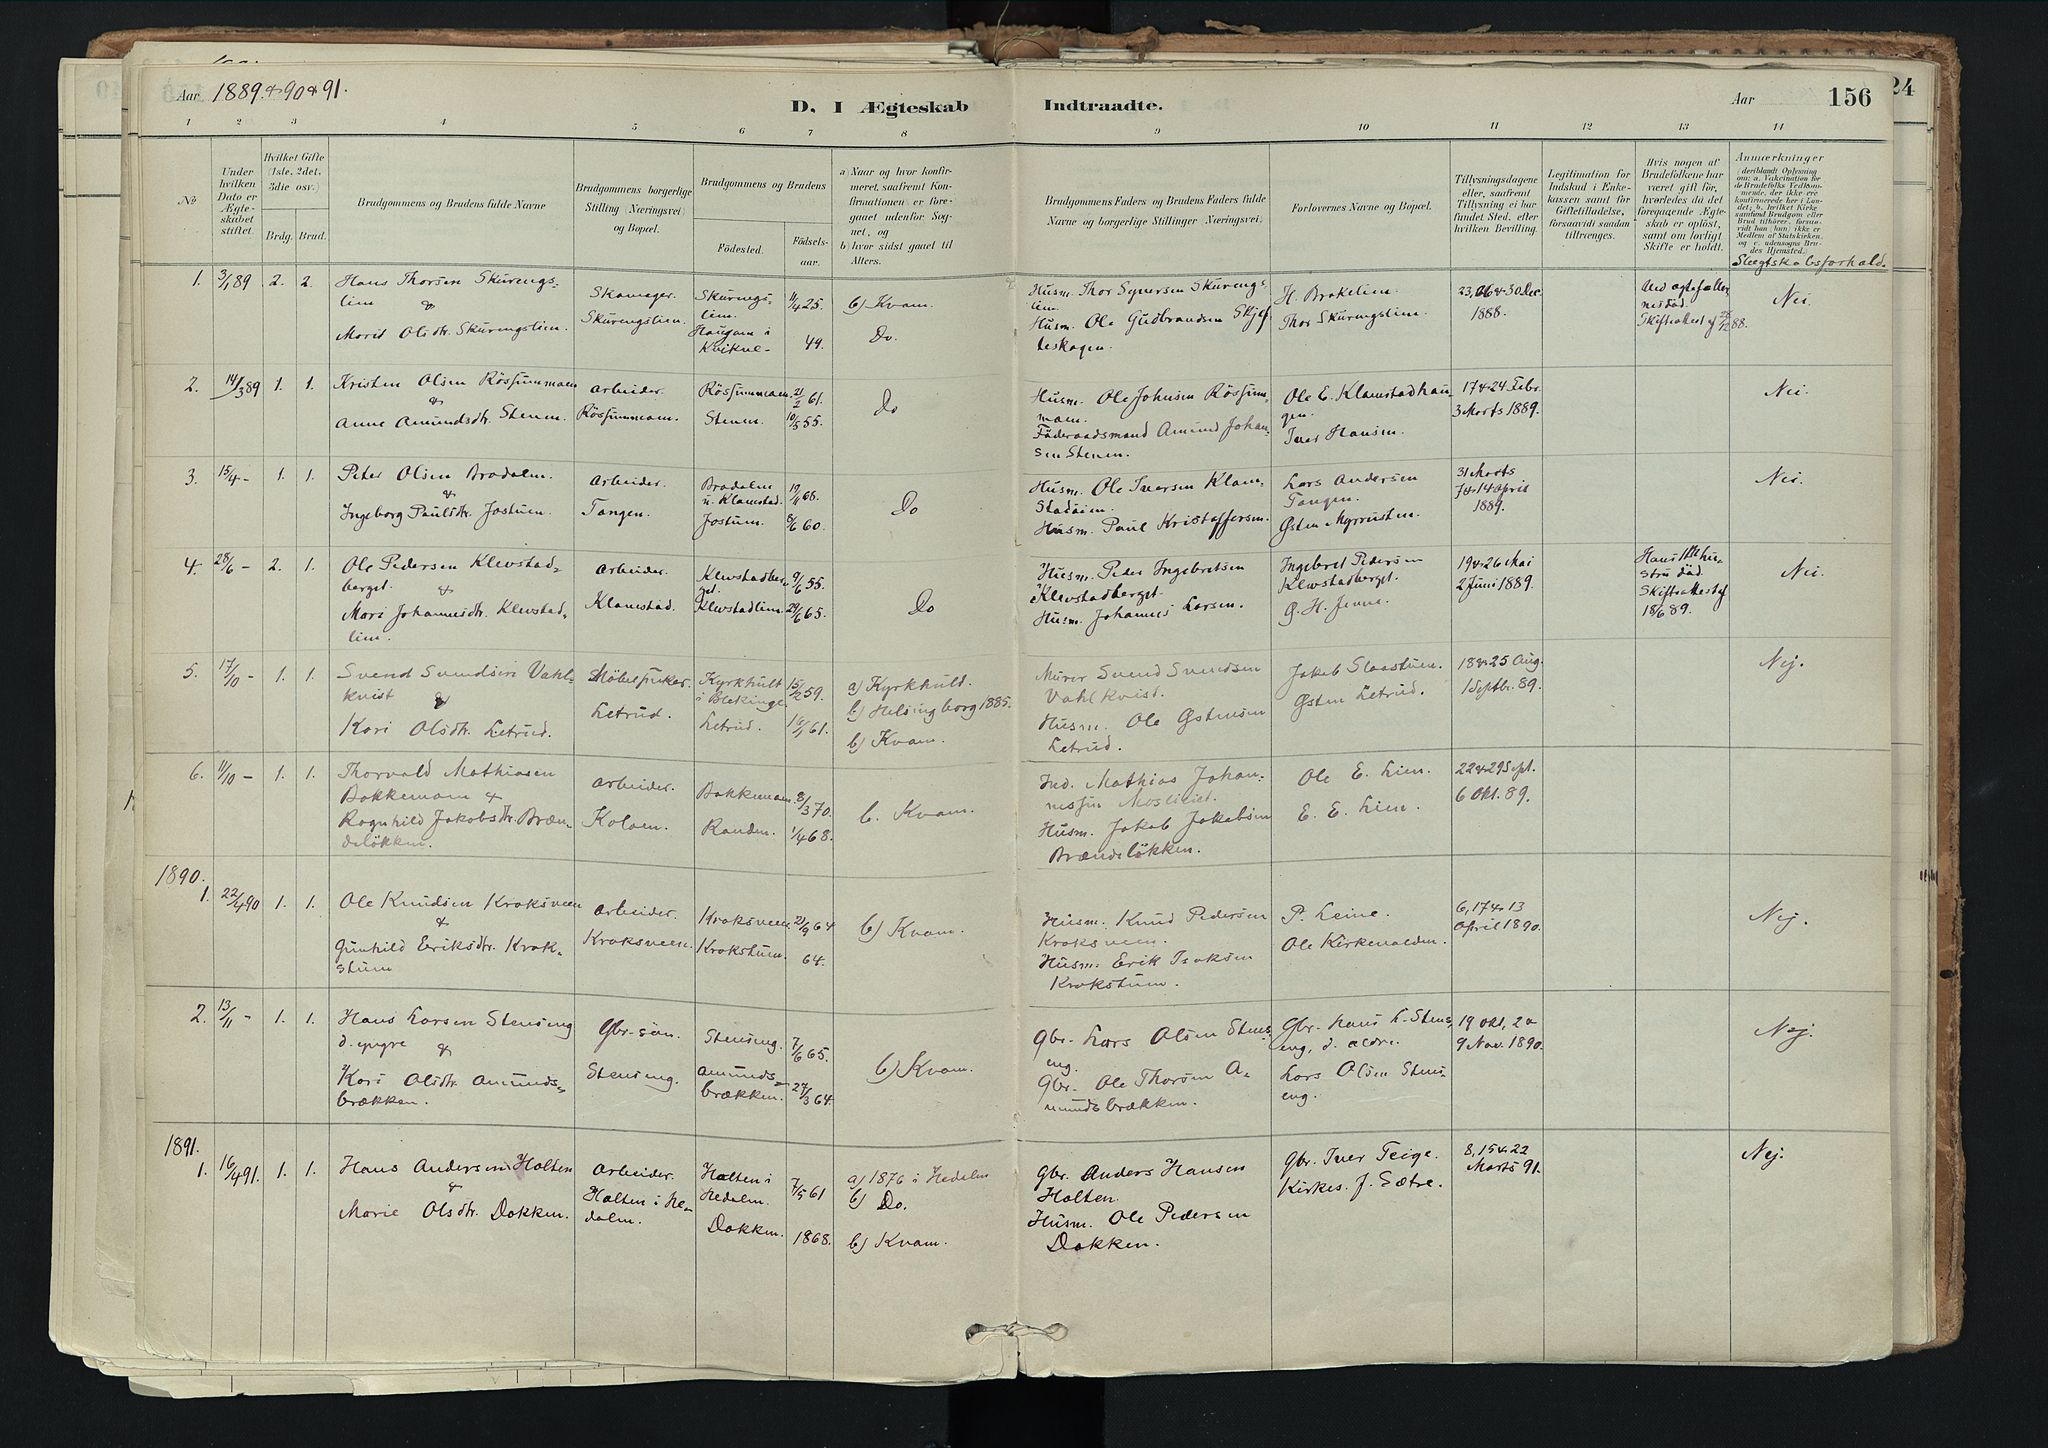 Aar 1889 & 90 & 91.
D. I Ægteskab Indtraadte.
Aar
156
24
1 2 3 4 5 6 7 8 9 10 11 12 13 14
No
Under hvilken Dato er Ægteskabet stiftet.
Hvilket Gifte (1ste, 2det, 3die osv.)
Brdg. Brud.
Brudgommens og Brudens fulde Navne
Brudgommens borgerlige Stilling (Næringsvei) og Bopæl.
Brudgommens og Brudens
Fødested. Fødselsaar.
a) Naar og hvor konfirmeret, saafremt Konfirmationen er foregaaet udenfor Sognet, og
b) hvor sidst gaaet til Alters.
Brudgommens Faders og Brudens Faders fulde Navne og borgerlige Stillinger (Næringsvei).
Forlovernes Navne og Bopæl.
Tillysningsdagene eller, saafremt Tillysning ei har fundet Sted, efter hvilken Bevilling.
Legitimation for Indskud i Enkekassen samt for Giftetilladelse, forsaavidt saadan tiltrænges.
Hvis nogen af Brudefolkene har været gift før, hvorledes da det foregaaende Ægteskab er opløst, samt om lovligt Skifte er holdt.
Anmærkninger
(deriblandt Oplysning om: a. Vakcination for de Brudefolks Vedkommende, der ikke ere konfirmerede her i Landet; b. hvilket Kirkesamfund Brudgom eller Brud tilhører, forsaavidt han (hun) ikke er Medlem af Statskirken, og c. udensogns Brudes Hjemsted.
Slægtskabsforhold.
1. 3/1 89 2. 2.
Hans Thorsen Skurengslien
&
Marit Olsdtr. Skurengslien.
Skomager.
Skurengslien.
Skurengslien.
Haugen i Kvikne
11/4 25.
44.
b) Kvam.
Do.
Husm. Thor Syversen Skurengslien.
Husm. Ole Gudbrandsen Skjefteskogen.
H. Brekelien.
Thor Skurengslien.
23, 26 & 30 Dec. 1888.
Nei.
2. 14/3 89 1. 1.
Kristen Olsen Røssummoen
&
Anne Amundsdtr. Steen.
Arbeider.
Røssummoen.
Røssummoen.
Steen.
21/2 61.
10/5 55.
Do
Husm. Ole Johnsen Røssummoen.
Føderaadsmand Amund Johansen Steen.
Ole E. Klamstadhaugen.
Iver Hansen.
17 & 24 Febr.
3 Marts 1889.
Nei.
3. 15/4 - 1. 1.
Peter Olsen Bradalen.
&
Ingeborg Paulsdtr. Jostuen.
Arbeider.
Tangen.
Bradalen u. Klamstad.
Jostuen.
8/6 60.
Do
Husm. Ole Iversen Klamstadeien.
Husm. Paul Kristoffersen.
Lars Andersen Tangen.
Østen Myrrusten.
31 Marts
7 & 14 April
1889.
Nei.
4. 28/6 - 2. 1.
Ole Pedersen Klevstadberget.
&
Mari Johannesdtr. Klevstadlien.
Arbeider.
Klamstad.
Klevstadberget.
Klevstadlien.
9/6 55.
24/6 65.
Do
Husm. Peder Ingebretsen Klevstadberget.
Husm. Johannes Larsen.
Ingebret Pedersen Klevstadberget.
19 & 26 Mai
2 Juni 1889.
Hans 1ste hustru død.
Skifteattest af 18/6 89.
Nei.
5. 17/10 - 1. 1.
Svend Svendsen Vahlkvist
&
Kari Olsdtr. Letrud.
Møbelsnekker.
Letrud.
Kyrkhult i Blekinge.
Letrud.
15/2 59.
61.
a) Kyrkhult.
b) Helsingborg 1885.
b) Kvam.
Murer Svend Svendsen Vahlkvist.
Husm. Ole Østensen Letrud.
Jakob Slaastuen.
Østen Letrud.
18 & 25 Aug.
1 Septbr. 89.
Nej.
6. 11/10 - 1. 1.
Thorvald Mathiasen Bakkemoen &
Ragnhild Jakobsdtr. Brændeløkken.
Arbeider.
Koloen.
Bakkemoen.
Randen.
8/3 70.
1/4 68.
b. Kvam.
Ind. Mathias Johannessen Moslettet.
Husm. Jakob Jakobsen Brændeløkken.
Ole E. Lien.
E. E. Lien.
22 & 29 Sept.
6 Okt. 89.
1890.
1. 22/4 90 1. 1.
Ole Knudsen Kroksveen
&
Gunhild Eriksdtr. Krokstuen
Arbeider.
Kroksveen.
Kroksveen.
Krokstuen.
21/9 64
64.
b) Kvam.
Husm. Knud Pedersen Kroksveen.
Husm. Erik Isaksen Krokstuen.
P. Leine.
Ole Kirkevolden.
6, 17 & 13
April 1890.
Nej.
2. 13/11 - 1. 1.
Hans Larsen Stenseng d. yngre &
Kari Olsdtr. Amundsbrækken.
Gbr. søn.
Stenseng.
Stenseng.
Amundsbrækken.
7/6 65.
27/3 64.
b) Kvam.
Gbr. Lars Olsen Stenseng.
Gbr. Ole Thorsen Amundsbrækken.
Gbr. Hans L. Stenseng, d. ældre.
Lars Olsen Stenseng.
19 Okt., 2 &
9 Nov. 1890.
Nej.
1891.
1. 16/4 91. 1. 1.
Hans Andersen Holten
&
Marie Olsdtr. Dokken.
Arbeider.
Holten i Hedalen.
Holten i Hedalen.
Dokken.
7/5 61
1868.
a) 1876 i Hedalen
b) Do.
b) Kvam.
Gbr. Anders Hansen Holten.
Husm. Ole Pedersen Dokken.
Gbr. Iver Teige.
Kirkes. J. Sætre.
8, 15 & 22
Marts 91.
Nej.